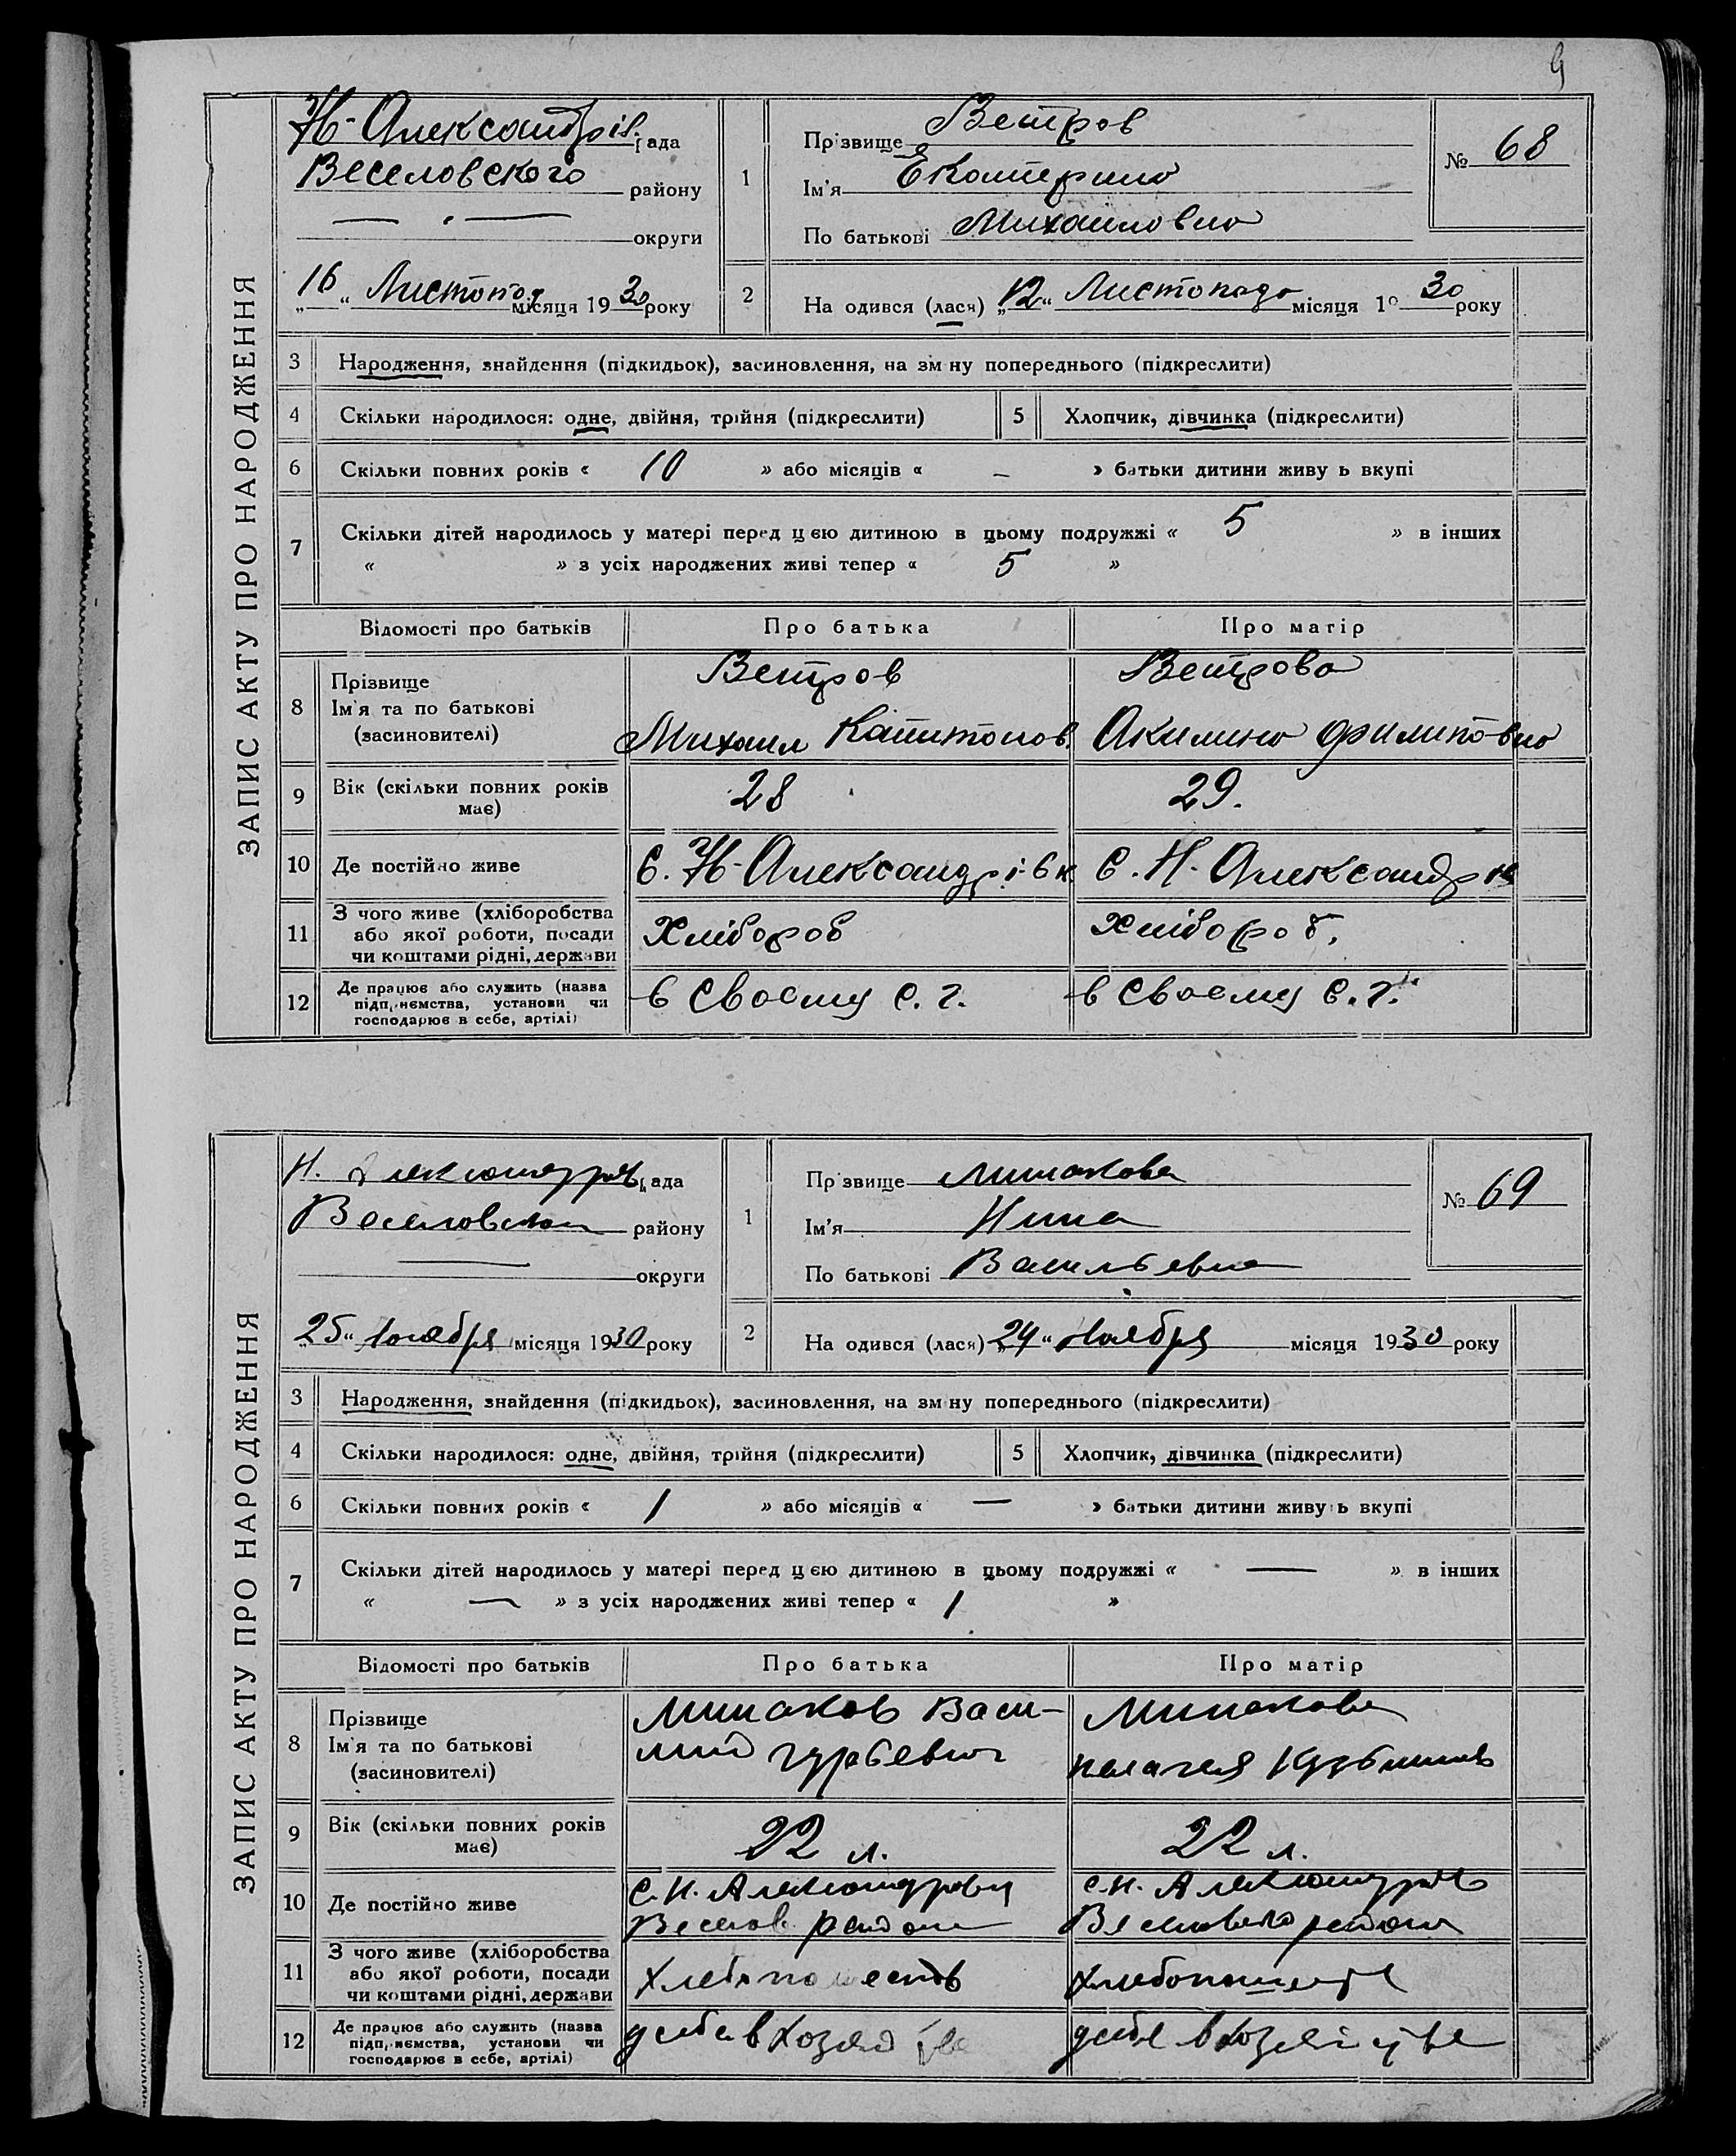 9
ЗАПИС АКТУ ПРО НАРОДЖЕННЯ
Н-Александрів. рада
Веселовского району
— " — округи
"16" Листопад місяця 1930 року
1 Прізвище Ветров
Ім'я Екатерина
По батькові Михайловна
№ 68
2 На одився (лася) "12" Листопада місяця 19 30 року
3 Народження, знайдення (підкидьок), засиновлення, на зм ну попереднього (підкреслити)
4 Скільки народилося: одне, двійня, трійня (підкреслити)
5 Хлопчик, дівчинка (підкреслити)
6 Скільки повних років « 10 » або місяців « — » батьки дитини живу ь вкупі
7 Скільки дітей народилось у матері перед цією дитиною в цьому подружжі « 5 » в інших
« » з усіх народжених живі тепер « 5 »
Відомості про батьків Про батька Про матір
8 Прізвище Ім'я та по батькові (засиновителі)
Ветров Ветрова
Михаил Капитонов. Акилина Филиповна
9 Вік (скільки повних років має) 28 29.
10 Де постійно живе с. Н-Александрівк с. Н. Александрів
11 З чого живе (хліборобства або якої роботи, посади чи коштами рідні, держави
Хлібороб Хлібороб.
12 Де працює або служить (назва підприємства, установи чи господарює в себе, артілі)
в своему с. г. в своему с. г.
ЗАПИС АКТУ ПРО НАРОДЖЕННЯ
Н. Александрів рада
Веселовском району
— округи
"25" Ноября місяця 1930 року
1 Прізвище Минакова
Ім'я Нина
По батькові Васильевна
№ 69
2 На одився (лася) "24" Ноября місяця 1930 року
3 Народження, знайдення (підкидьок), засиновлення, на зм ну попереднього (підкреслити)
4 Скільки народилося: одне, двійня, трійня (підкреслити)
5 Хлопчик, дівчинка (підкреслити)
6 Скільки повних років « 1 » або місяців « — » батьки дитини живу ь вкупі
7 Скільки дітей народилось у матері перед цією дитиною в цьому подружжі « — » в інших
« — » з усіх народжених живі тепер « 1 »
Відомості про батьків Про батька Про матір
8 Прізвище Ім'я та по батькові (засиновителі)
Минаков Васи- Минакова
лий Гурьевич Пелагея Кузьминов
9 Вік (скільки повних років має) 22 л. 22 л.
10 Де постійно живе
с. Н. Александровц с. Н. Александрів
Веселов. района Веселовского района
11 З чого живе (хліборобства або якої роботи, посади чи коштами рідні, держави
12 Де працює або служить (назва підприємства, установи чи господарює в себе, артілі)